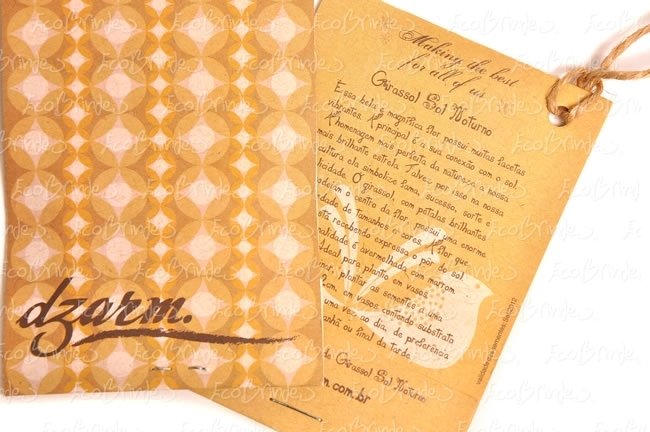 dzarm.
Making the best
for all of us
Girassol Sol Noturno
Essa bela e magnífica flor possui muitas facetas
vibrantes. A principal é a sua conexão com o sol.
A homenagem mais perfeita da natureza a nossa
mais brilhante estrela. Talvez por isso na nossa
cultura ela simbolize fama, sucesso, sorte
licidade. O girassol, com pétalas brilhantes
deiam o centro da flor, possui uma enorme
dade de tamanhos e cores. A flor que
stá recebendo expressa o pôr do sol
nalidade é avermelhada com marrom.
Ideal para plantio em vasos.
plantar as sementes a uma
cm, em vasos contendo substrato
uma vez ao dia, de preferência
nhã ou final da tarde
de Girassol Sol Noturno
m.com.br
EcoBrindes